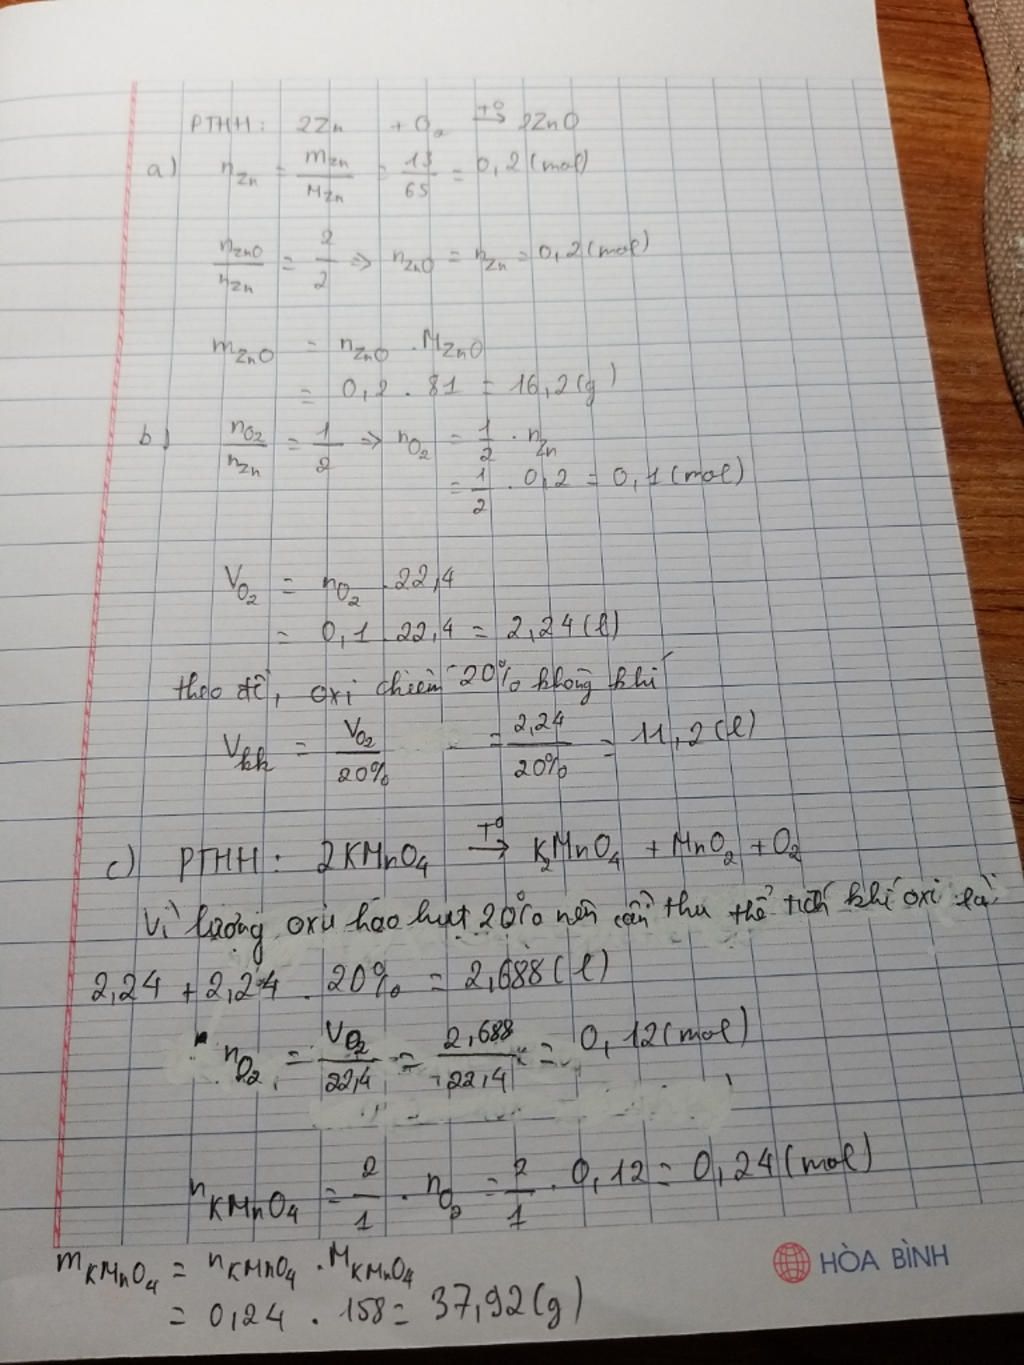 PTHH: 2Zn + O₂ →(T⁰) 2ZnO
a) n_Zn = m_Zn / M_Zn = 13/65 = 0,2 (mol)
n_ZnO / n_Zn = 2/2 => n_ZnO = n_Zn = 0,2 (mol)
m_ZnO = n_ZnO . M_ZnO
= 0,2 . 81 = 16,2 (g)
b) n_O₂ / n_Zn = 1/2 => n_O₂ = 1/2 . n_Zn
= 1/2 . 0,2 = 0,1 (mol)
V_O₂ = n_O₂ . 22,4
= 0,1 . 22,4 = 2,24 (l)
theo đề, oxi chiếm 20% không khí
V_kk = V_O₂ / 20% = 2,24 / 20% = 11,2 (l)
c) PTHH: 2KMnO₄ →(T⁰) K₂MnO₄ + MnO₂ + O₂
Vì lượng oxi hao hụt 20% nên cần thu thể tích khí oxi là:
2,24 + 2,24 . 20% = 2,688 (l)
n_O₂ = V_O₂ / 22,4 = 2,688 / 22,4 = 0,12 (mol)
n_KMnO₄ = 2/1 . n_O₂ = 2/1 . 0,12 = 0,24 (mol)
m_KMnO₄ = n_KMnO₄ . M_KMnO₄
= 0,24 . 158 = 37,92 (g)
HÒA BÌNH